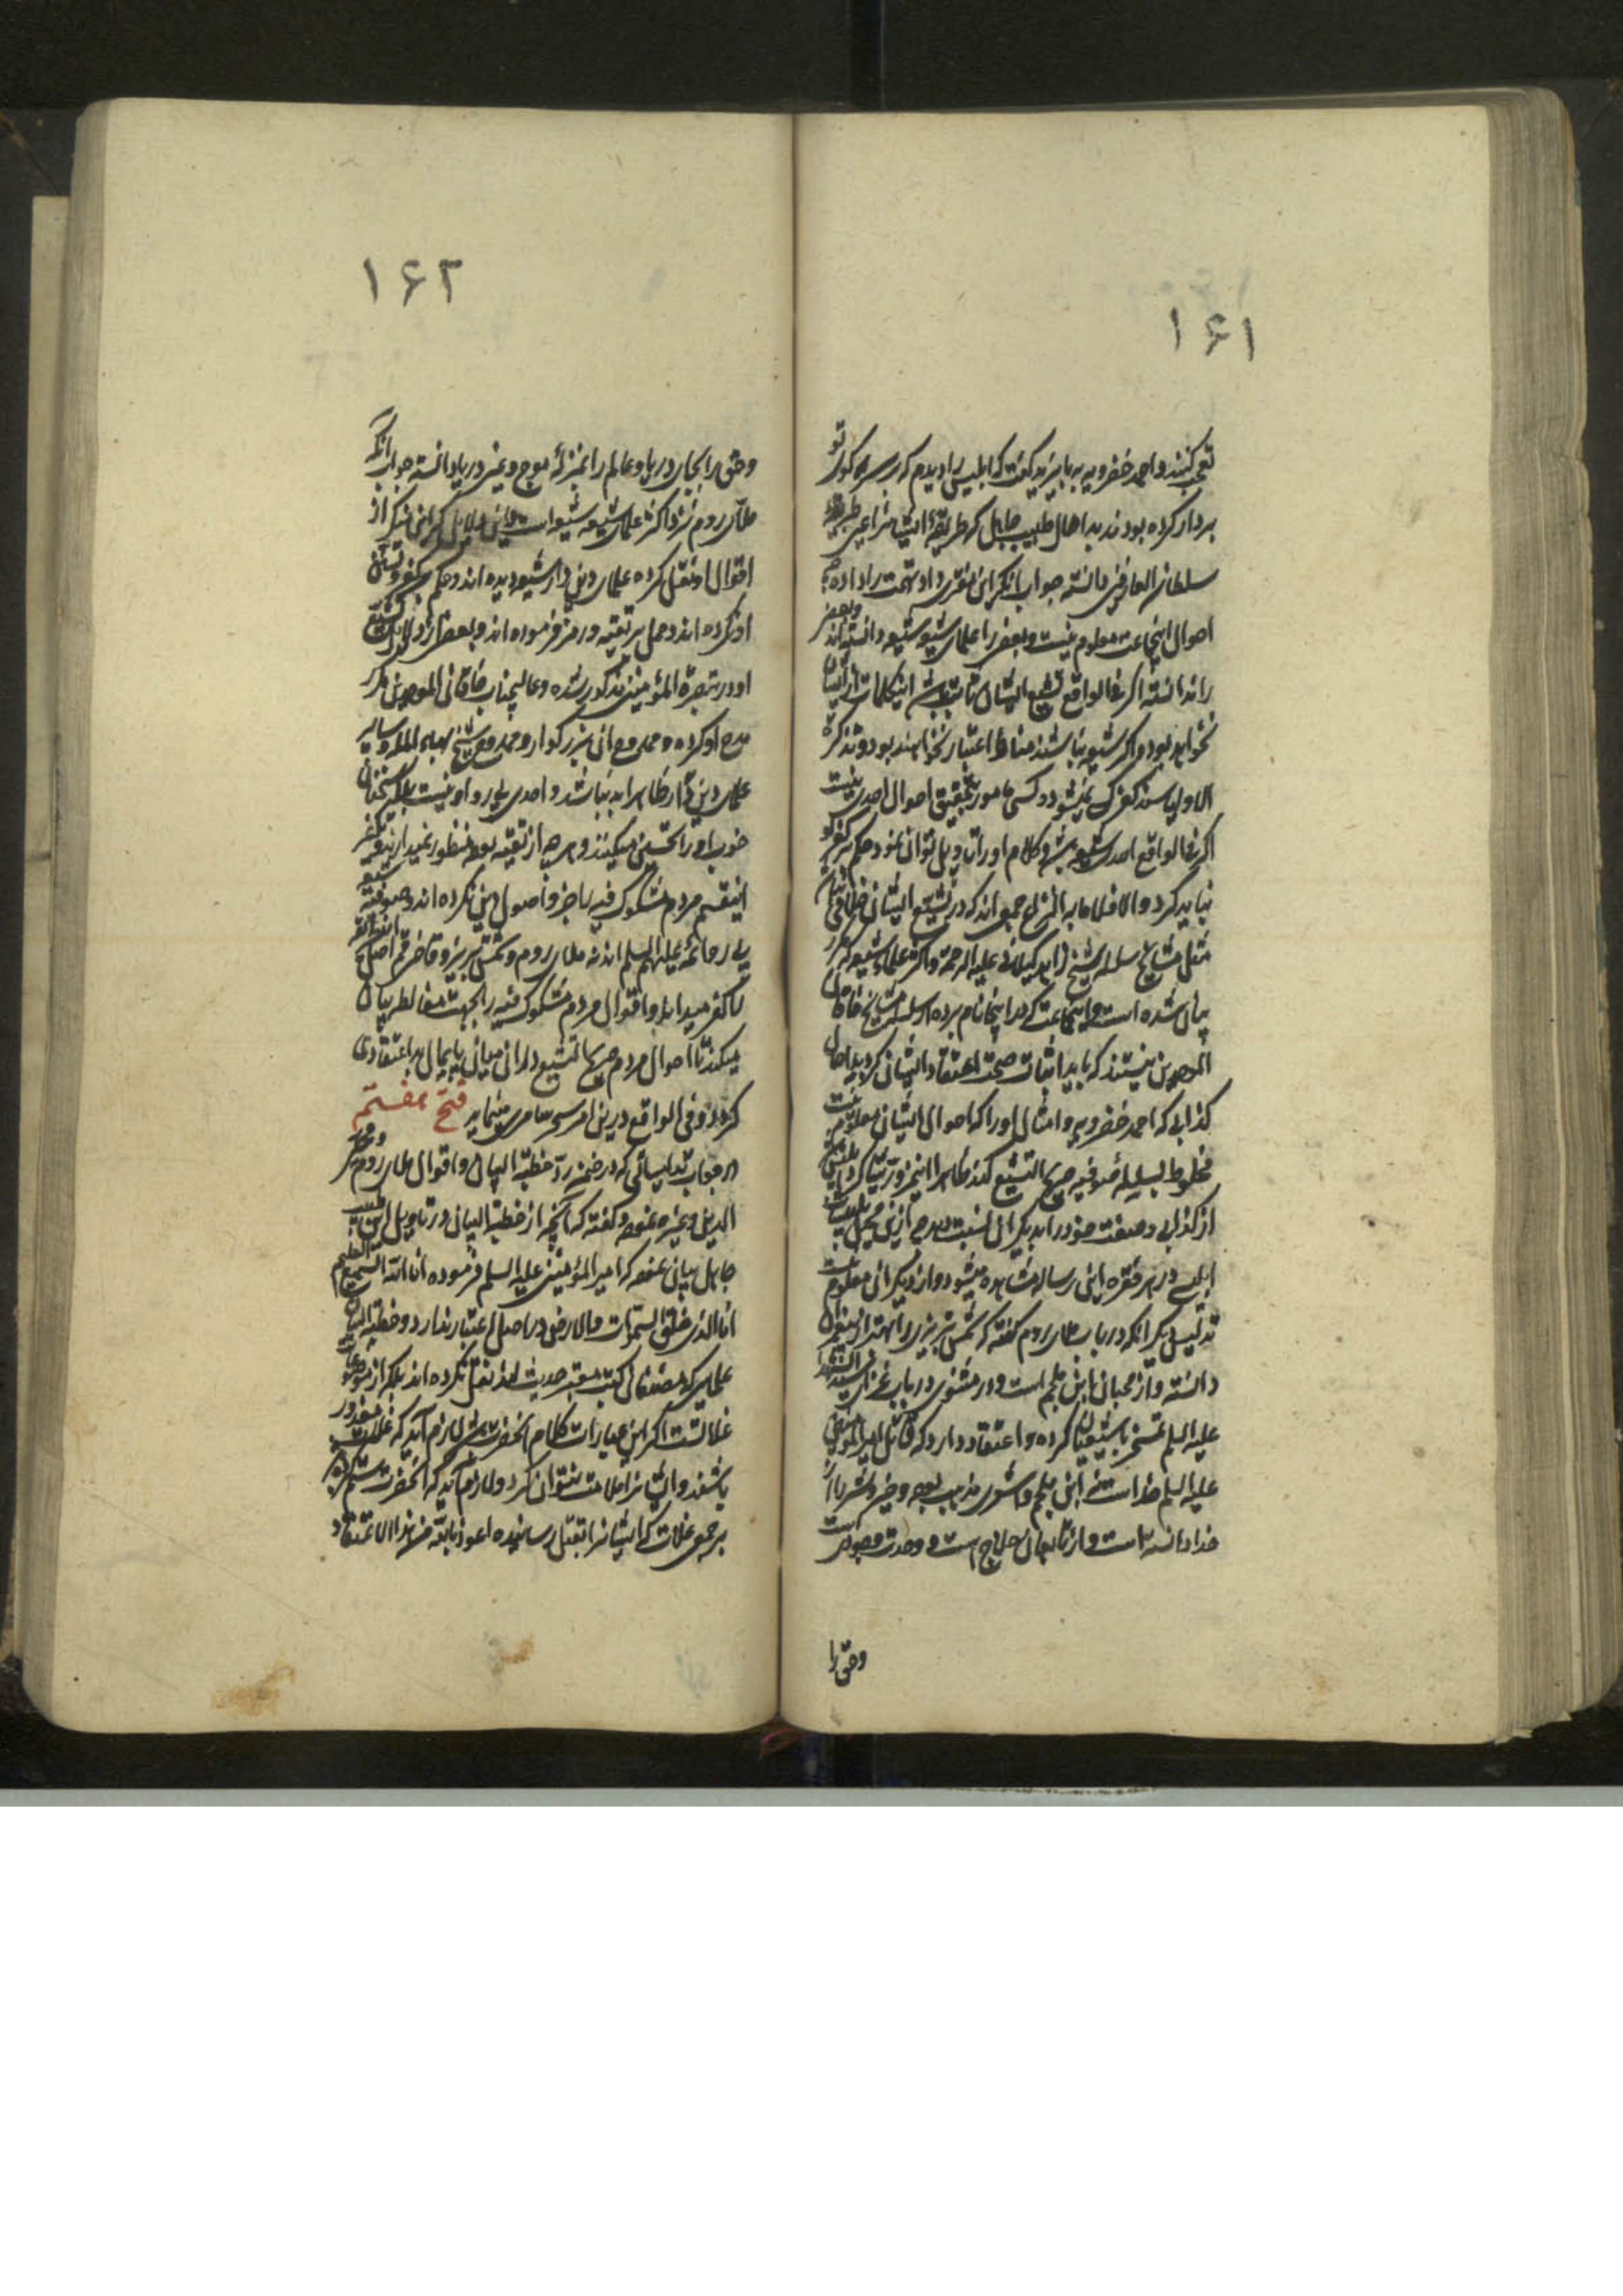 ۱۶۱
تعجب کنند و احمد خضرویه به بایزید گفت که ابلیس را دیدم که بر سر کوی تو
بر دار کرده بودند بد اهل طبیب جاهل که طریقهٔ ایشانرا غیر طریقهٔ
سلطان العارفین دانسته جواب آنکه این مفتری داد تهمت را داده چه
احوال اینجماعت معلوم نیست و بعضی را علمای شیعه شیعه دانسته‌اند و بعضی
را ندانسته اگر فی الواقع تشیع ایشان ثابت باشد اینکلمات از ایشان
نخواهد بود و اگر شیعه نباشند مناط اعتبار نخواهند بود و تذکرة
الاولیا سند کفر کسی نمیشود و کسی مامور بتحقیق احوال احدی نیست
اگر فی الواقع احدی شیعه باشد و کلام او را تاویل توان نمود حکم بر کفر او
نباید کرد و الا فلا ما به النزاع جمعی‌اند که در تشیع ایشان خلافی نیست
مثل مشایخ سلسله شیخ زاهد گیلانی علیه الرحمة و اکثر علمای شیعه که مکرر
بیان شده است و اینجماعت که در اینجا نام برده از سلسله مشایخ خاقان
الموحدین نیستند که باید اثبات صحت اعتقاد ایشان کرد بد اهل
کذابی که احمد خضرویه و امثال او را که احوال ایشان معلوم نیست
مخلوط بسلسلهٔ صوفیه صحیح التشیع کند ظاهرا
از کذابی و صفت خود را بدیگران نسبت دهد
ابلیسی در هر فقره این رساله مشاهده میشود و از دیگران معلوم نیست
تدلیس دیگر آنکه در باب ملای روم گفته که شمس تبریزی را بهتر از پیغمبران
دانسته و از محبان ابن ملجم است و در مثنوی در باب عزای سید الشهداء
علیه السلم تمسخر بشیعیان کرده و اعتقاد دارد که قاتل امیر المؤمنین
علیه السلم خداست نه ابن ملجم و
خدا دانسته است و از تابعان حلاج است و وحدت وجودی است
وحق را
۱۶۲
وحق را بجای دریا و عالم را بمنزلهٔ موج و عین دریا دانسته جواب آنکه
ملای روم نزد اکثر علمای شیعه شیعه است
اقوال او نقل کرده علمای دین دار شیعه دیده‌اند و حکم بر کفر و تسنن
او نکرده‌اند و حمل بر تقیه و رمز فرموده‌اند و بعضی از دلایل تشیع
او در تبصرة المؤمنین مذکور شده و عالیجناب خاقانی الموحدین مکرر
مدح او کرده و ممدوح آن بزرگوار و ممدوح شیخ بهاء الملة و سایر
علمای دین دار ظاهرا بد نباشد و احدی پیرو او نیست بلکه سخنان
خوب او را تحسین میکنند و هر چه از تقیه بوده منظور نمیدارند و تکفیر
اینقسم مردم مشکوک فیه را جزو اصول دین نکرده‌اند و صوفیهٔ شیعه
پیرو ائمه علیهم السلم‌اند نه ملای روم و شمس تبریز
را کفر میداند و اقوال مردم مشکوک فیه را بجهت مغالطه بیان
میکند تا احوال مردم صحیح التشیع در آن میان پایمال بد اعتقادی
گردد و فی الواقع درین امر سحر سامری مینماید فتح هفتم
در جواب تدلیساتی که در ضمن رد خطبة البیان و اقوال ملای روم و محیی
الدین و غیره نموده و گفته که آنچه از خطبة البیان در تاویل این طبیب
جاهل بیان نموده که امیر المؤمنین علیه السلم فرموده انا الله السمیع العلیم
انا الذی خلق السموات و الارض در اصل اعتبار ندارد و خطبة البیان
علمای که مصنفان کتب معتبر حدیث‌اند نقل نکرده‌اند بلکه از موضوعات
غلاتست اگر این عبارات کلام آنحضرت باشد لازم آید که غلات معذور
باشند و ایشانرا ملامت نتوان کرد و لازم آید که آنحضرت ستم کرده باشد
بر جمعی غلات که ایشانرا بقتل رسانیده اعوذ بالله من هذا الاعتقاد